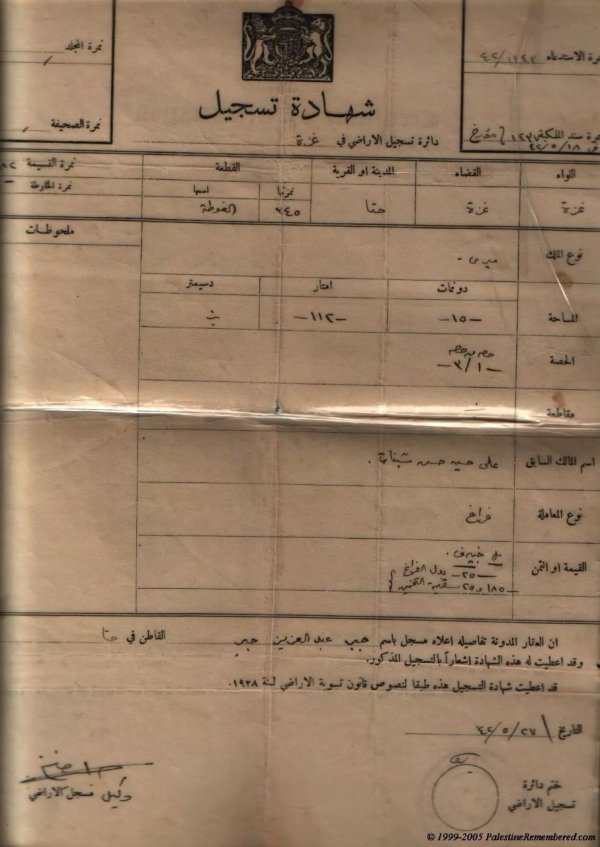 نمرة المجلد
نمرة الاستدعاء ٤٢/١٢٢٢
شهادة تسجيل
نمرة الصحيفة
دائرة تسجيل الاراضي في غزة
نمرة سند الملكية
٤٢/٥/١٨
اللواء القضاء المدينة او القرية القطعة نمرة القسيمة
نمرتها اسمها نمرة الخارطة
غزة غزة حتا ٦٤٥ الغوطة
ملحوظات
نوع الملك ميري
دونمات امتار دسيمتر
المساحة -١٥- -١١٢-
الحصة حصة من حصص
-٣/١-
مقاطعة
اسم المالك السابق علي حسين حسن
نوع المعاملة فراغ
القيمة او الثمن
-٢٥- بدل الفراغ
-١٨٥ و ٢٥
ان العقار المدونة تفاصيله اعلاه مسجل باسم جبر عبد العزيز جبر القاطن في حتا
وقد اعطيت له هذه الشهادة اشعاراً بالتسجيل المذكور.
قد اعطيت شهادة التسجيل هذه طبقا لنصوص قانون تسوية الاراضي لسنة ١٩٢٨.
التاريخ ٤٢/٥/٢٧
ختم دائرة
تسجيل الاراضي
وكيل مسجل الاراضي
© 1999-2005 PalestineRemembered.com